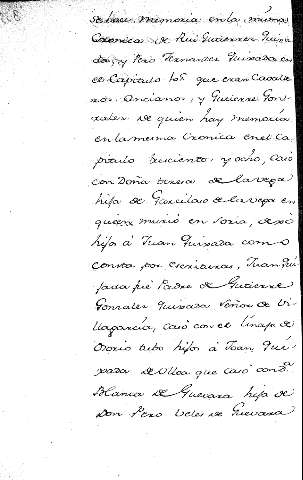 se hace memoria en la misma
Cronica, de Rui Gutierrez Quixa
da, y Pero Fernandez Quixada en
el Capitulo 107 que eran Cavalle
ros Ancianos, y Gutierre Gon-
zalez de quien hay memoria
en la mesma Cronica en el Ca
pitulo duciento, y ocho, casó
con Doña teresa de la vega
hija de Garcilaso de la vega en
quien murió en Soria, dexó
hijo á Juan Quixada como
consta por escrituras, Juan Qui
jada fué Padre de Gutierre
Gonzalez Quixada Señor de Vi
llagarcia, casó con el linage de
Osorio tubo hijos á Joan Qui-
xada de Ulloa que casó con D.ª
Blanca de Guevara hija de
Don Pero Velez de Guevara